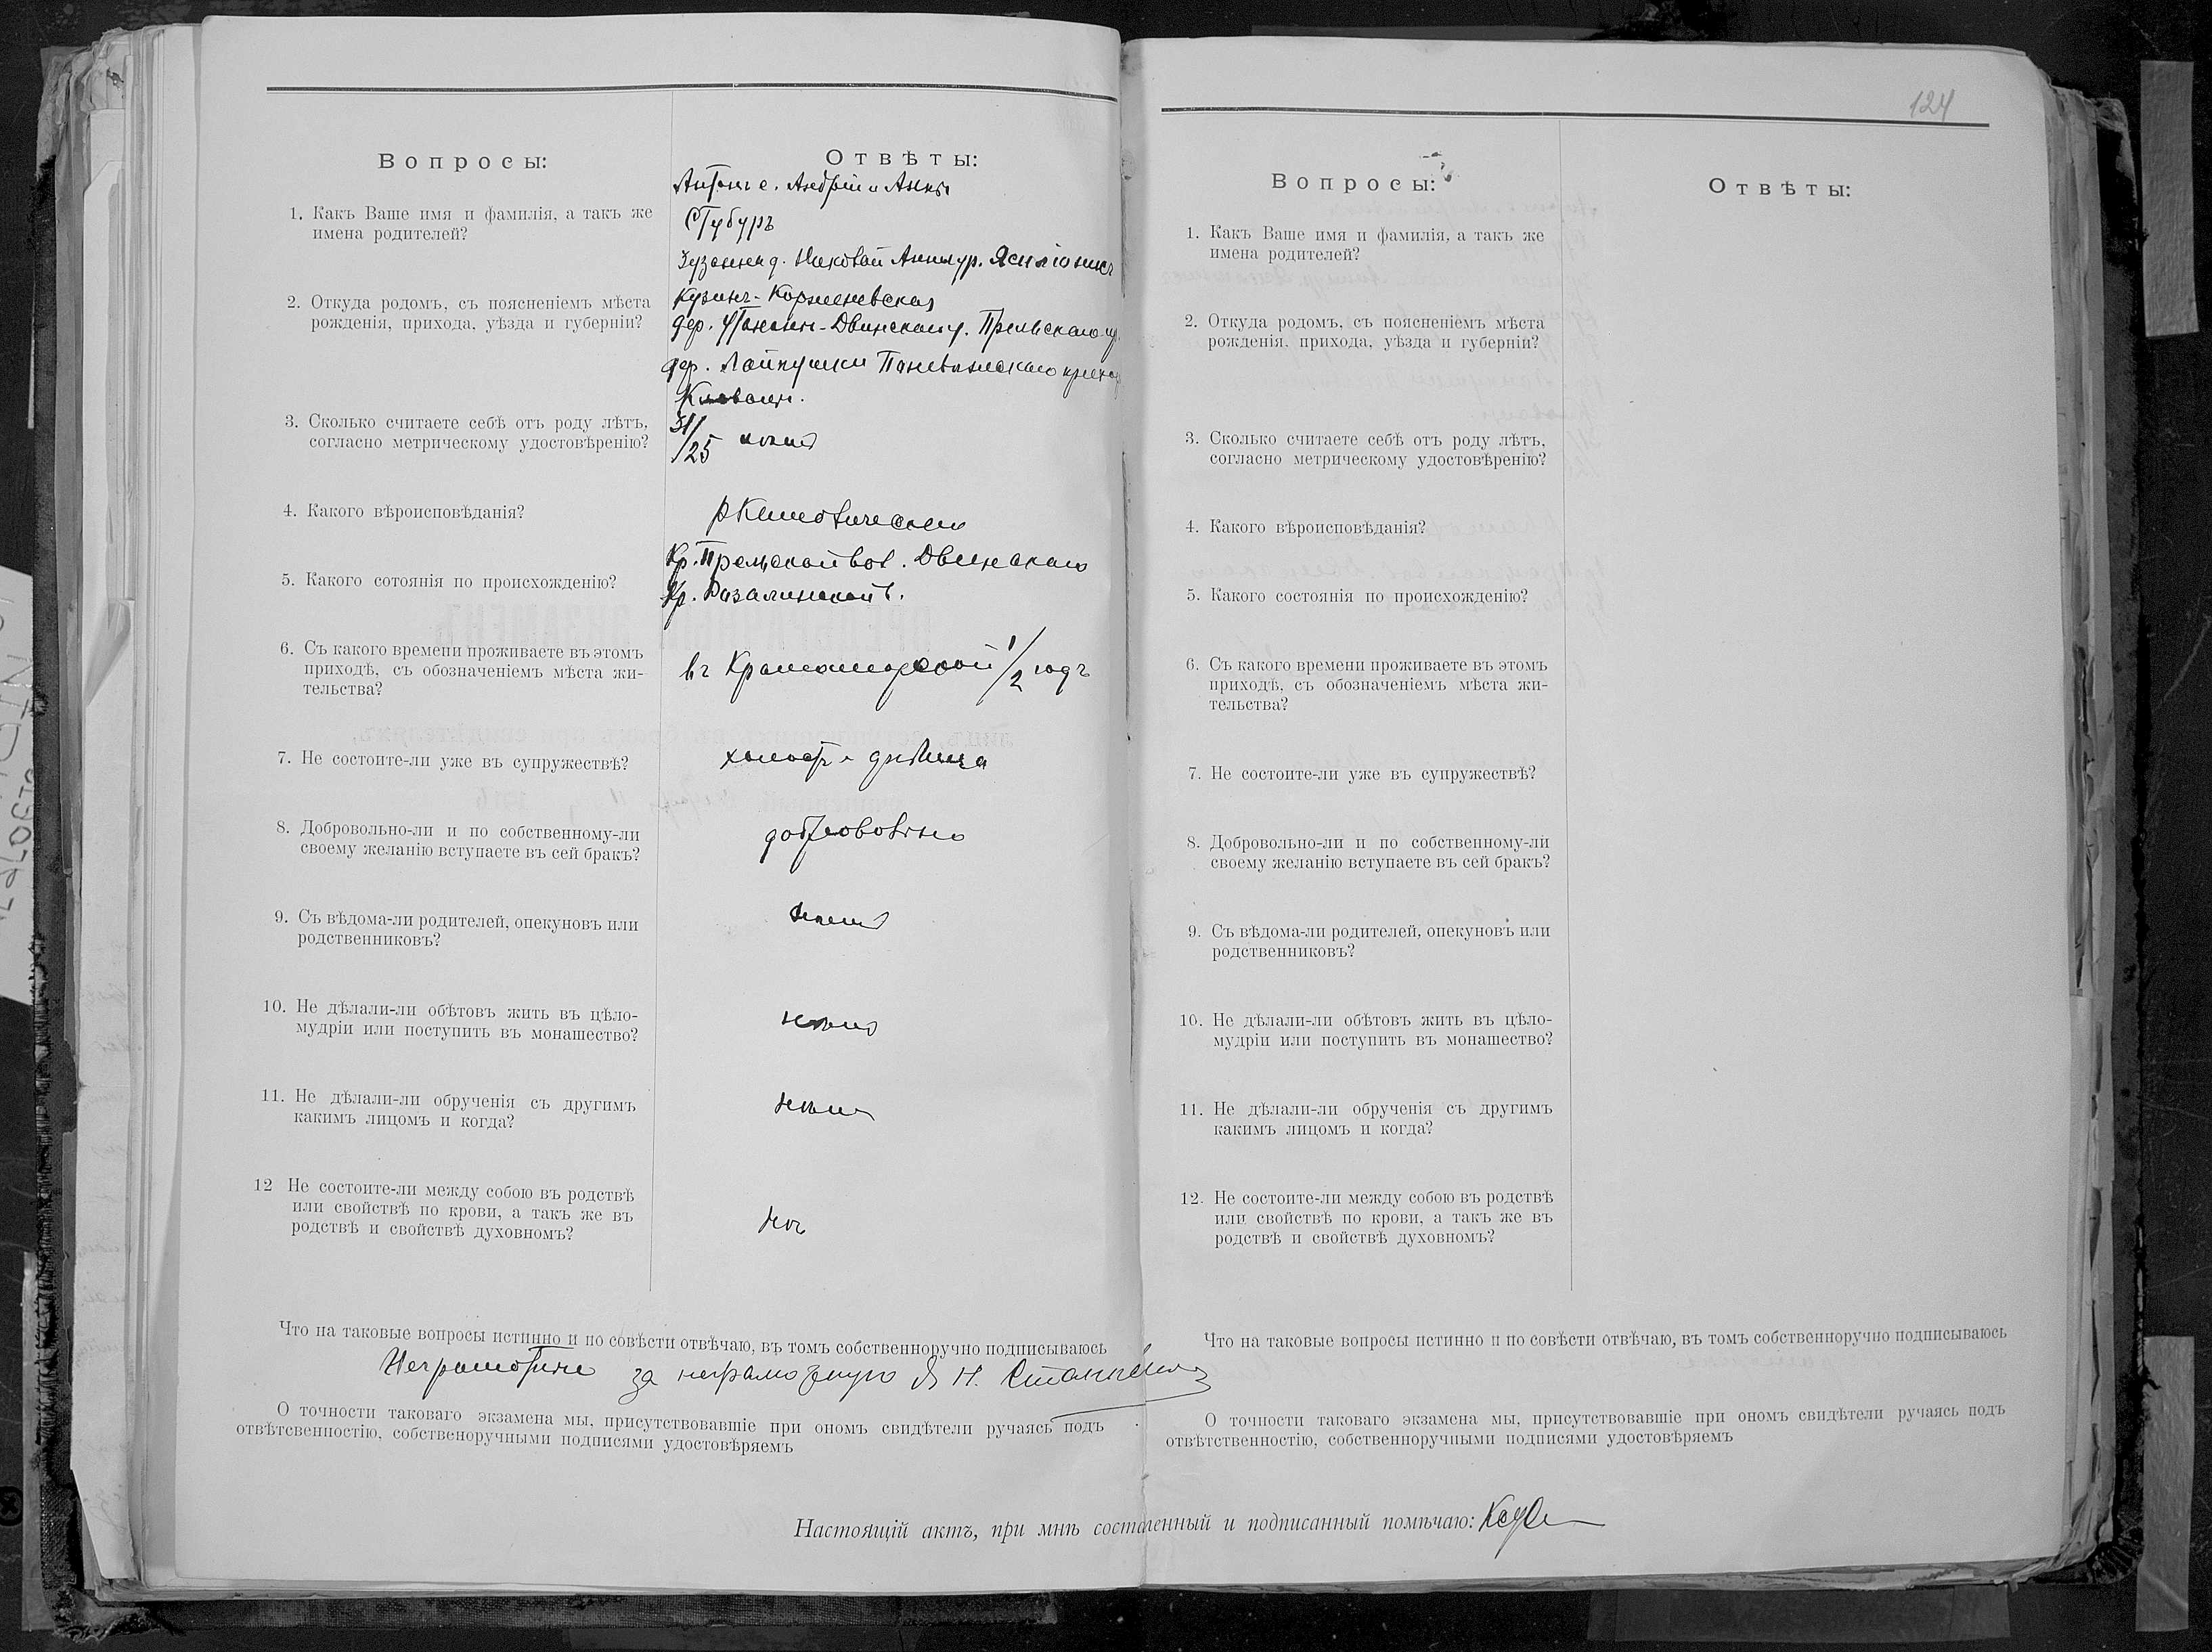 124
Вопросы:
Отвѣты:
Антонъ с. Андрѣй и Анны
Стубуръ
1. Какъ Ваше имя и фамилія, а такъ же
имена родителей?
Кузинъ-Корженевская
2. Откуда родомъ, съ поясненіемъ мѣста
рожденія, прихода, уѣзда и губерніи?
дер.
дер. Лайпушки
3. Сколько считаете себѣ отъ роду лѣтъ,
согласно метрическому удостовѣренію?
31/25
4. Какого вѣроисповѣданія?
5. Какого сотоянія по происхожденію?
Кр. Двинскаго
Кр. Розалинской в.
6. Съ какого времени проживаете въ этомъ
приходѣ, съ обозначеніемъ мѣста жи-
тельства?
въ Краматорской 1/2 годъ
7. Не состоите-ли уже въ супружествѣ?
холостъ дѣвица
8. Добровольно-ли и по собственному-ли
своему желанію вступаете въ сей бракъ?
добровольно
9. Съ вѣдома-ли родителей, опекуновъ или
родственниковъ?
10. Не дѣлали-ли обѣтовъ жить въ цѣло-
мудріи или поступить въ монашество?
11. Не дѣлали-ли обрученія съ другимъ
какимъ лицомъ и когда?
12 Не состоите-ли между собою въ родствѣ
или свойствѣ по крови, а такъ же въ
родствѣ и свойствѣ духовномъ?
Что на таковые вопросы истинно и по совѣсти отвѣчаю, въ томъ собственноручно подписываюсь
Неграмотные за неграмотную Н. Станкевичъ
О точности таковаго экзамена мы, присутствовавшіе при ономъ свидѣтели ручаясь подъ
отвѣтсвенностію, собственоручными подписями удостовѣряемъ
Вопросы:
Отвѣты:
1. Какъ Ваше имя и фамилія, а такъ же
имена родителей?
2. Откуда родомъ, съ поясненіемъ мѣста
рожденія, прихода, уѣзда и губерніи?
3. Сколько считаете себѣ отъ роду лѣтъ,
согласно метрическому удостовѣренію?
4. Какого вѣроисповѣданія?
5. Какого состоянія по происхожденію?
6. Съ какого времени проживаете въ этомъ
приходѣ, съ обозначеніемъ мѣста жи-
тельства?
7. Не состоите-ли уже въ супружествѣ?
8. Добровольно-ли и по собственному-ли
своему желанію вступаете въ сей бракъ?
9. Съ вѣдома-ли родителей, опекуновъ или
родственниковъ?
10. Не дѣлали-ли обѣтовъ жить въ цѣло-
мудріи или поступить въ монашество?
11. Не дѣлали-ли обрученія съ другимъ
какимъ лицомъ и когда?
12. Не состоите-ли между собою въ родствѣ
или свойствѣ по крови, а такъ же въ
родствѣ и свойствѣ духовномъ?
Что на таковые вопросы истинно и по совѣсти отвѣчаю, въ томъ собственноручно подписываюсь
О точности таковаго экзамена мы, присутствовавшіе при ономъ свидѣтели ручаясь подъ
отвѣтственностію, собственноручными подписями удостовѣряемъ
Настоящій актъ, при мнѣ составленный и подписанный помѣчаю: